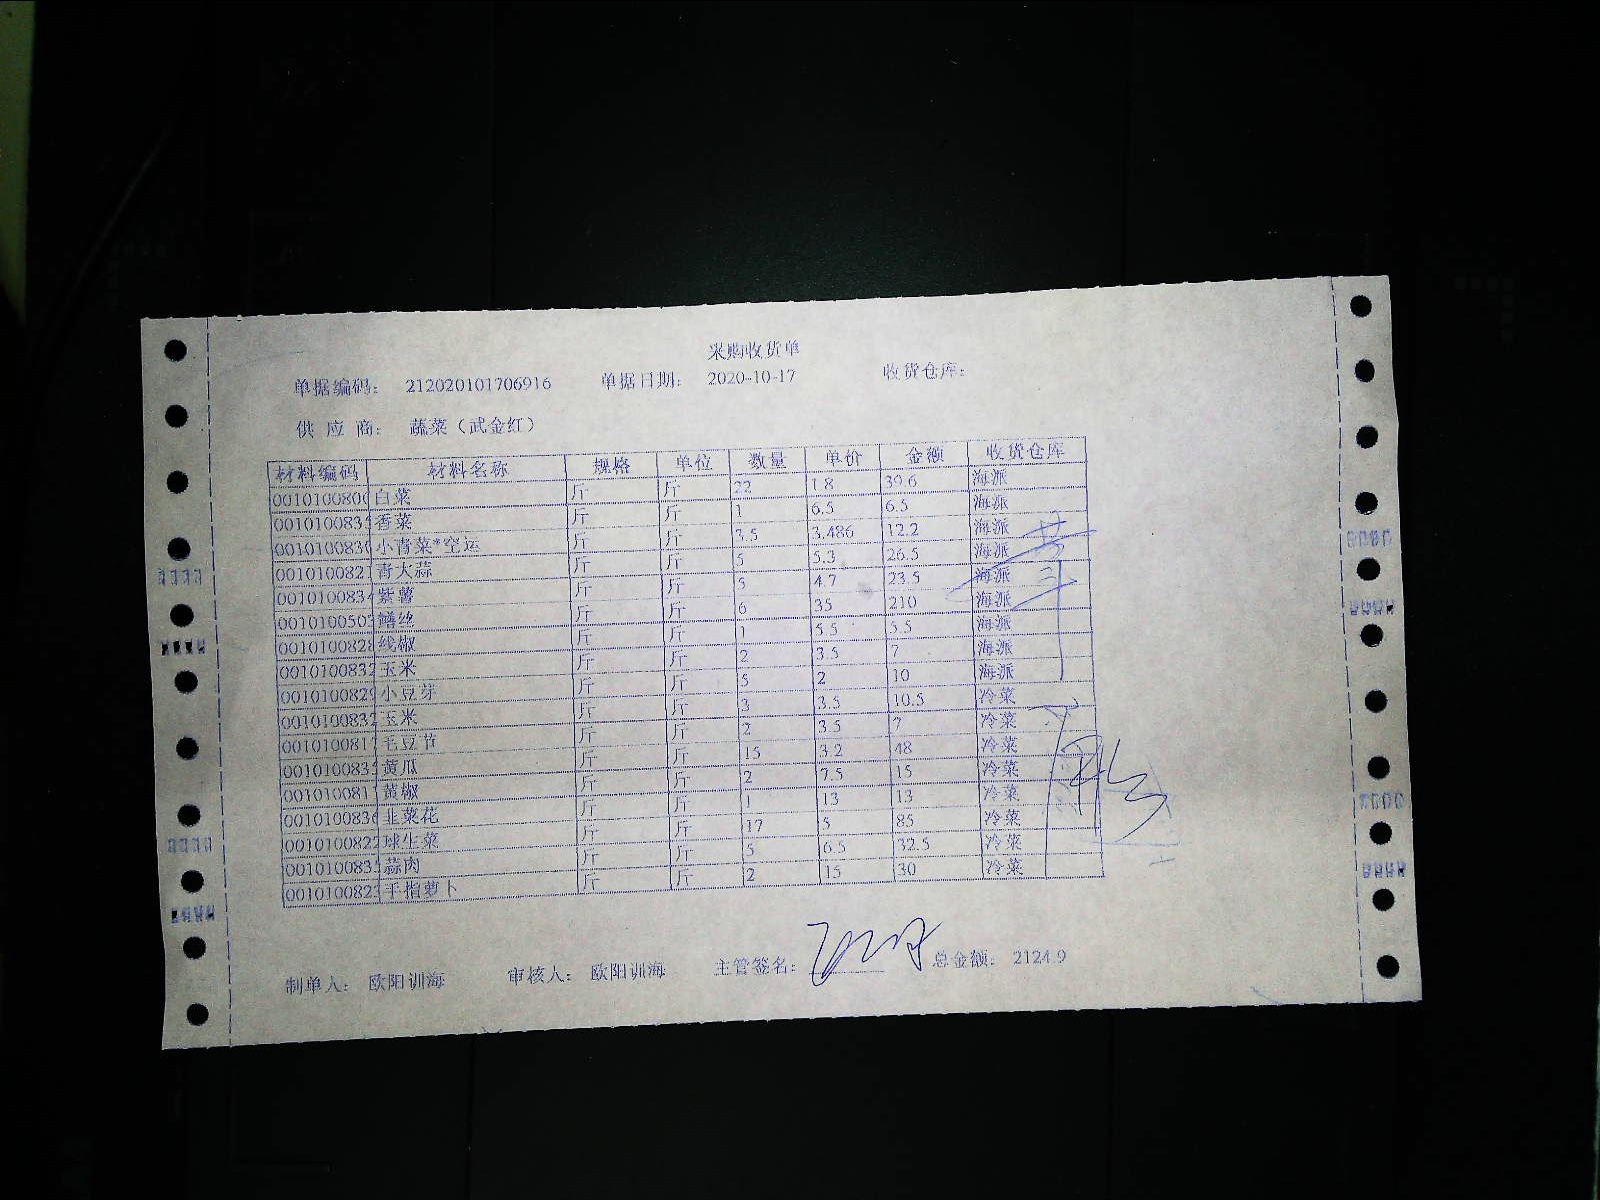 采购收货单
单据编码: 212020101706916 单据日期: 2020-10-17 收货仓库:
供 应 商: 蔬菜(武金红)
材料编码 材料名称 规格 单位 数量 单价 金额 收货仓库
0010100800 白菜 斤 斤 22 1.8 39.6 海派
001010083 香菜 斤 斤 1 6.5 6.5 海派
001010083 小青菜*空运 斤 斤 3.5 3.486 12.2 海派
001010082 青大蒜 斤 斤 5 5.3 26.5 海派
001010083 紫薯 斤 斤 5 4.7 23.5 海派
001010050 鳝丝 斤 斤 6 35 210 海派
001010082 线椒 斤 斤 1 5.5 5.5 海派
001010083 玉米 斤 斤 2 3.5 7 海派
001010082 小豆芽 斤 斤 5 2 10 海派
001010083 玉米 斤 斤 3 3.5 10.5 冷菜
001010081 毛豆节 斤 斤 2 3.5 7 冷菜
001010083 黄瓜 斤 斤 15 3.2 48 冷菜
001010081 黄椒 斤 斤 2 7.5 15 冷菜
001010083 韭菜花 斤 斤 1 13 13 冷菜
001010082 球生菜 斤 斤 17 5 85 冷菜
001010083 蒜肉 斤 斤 5 6.5 32.5 冷菜
001010082 手指萝卜 斤 斤 2 15 30 冷菜
制单人: 欧阳训海 审核人: 欧阳训海 主管签名: 总金额: 2124.9